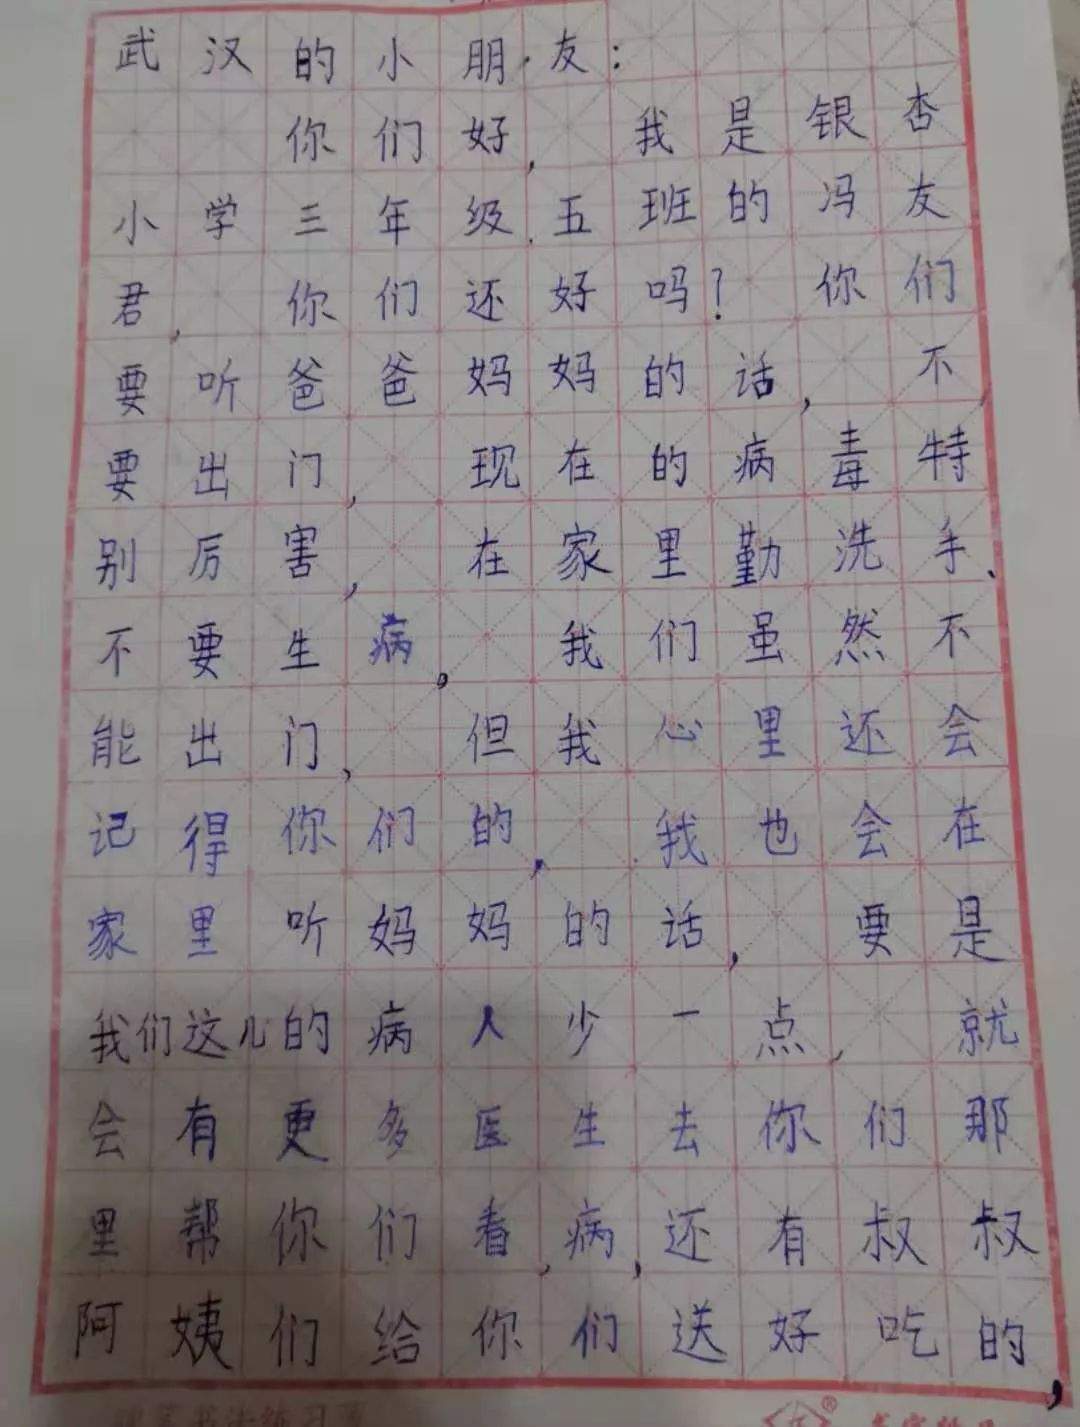 武汉的小朋友：
你们好，我是银杏
小学三年级五班的冯友
君，你们还好吗？你们
要听爸爸妈妈的话，不
要出门，现在的病毒特
别厉害，在家里勤洗手、
不要生病。我们虽然不
能出门，但我心里还会
记得你们的，我也会在
家里听妈妈的话，要是
我们这儿的病人少一点，就
会有更多医生去你们那
里帮你们看病，还有叔叔
阿姨们给你们送好吃的，